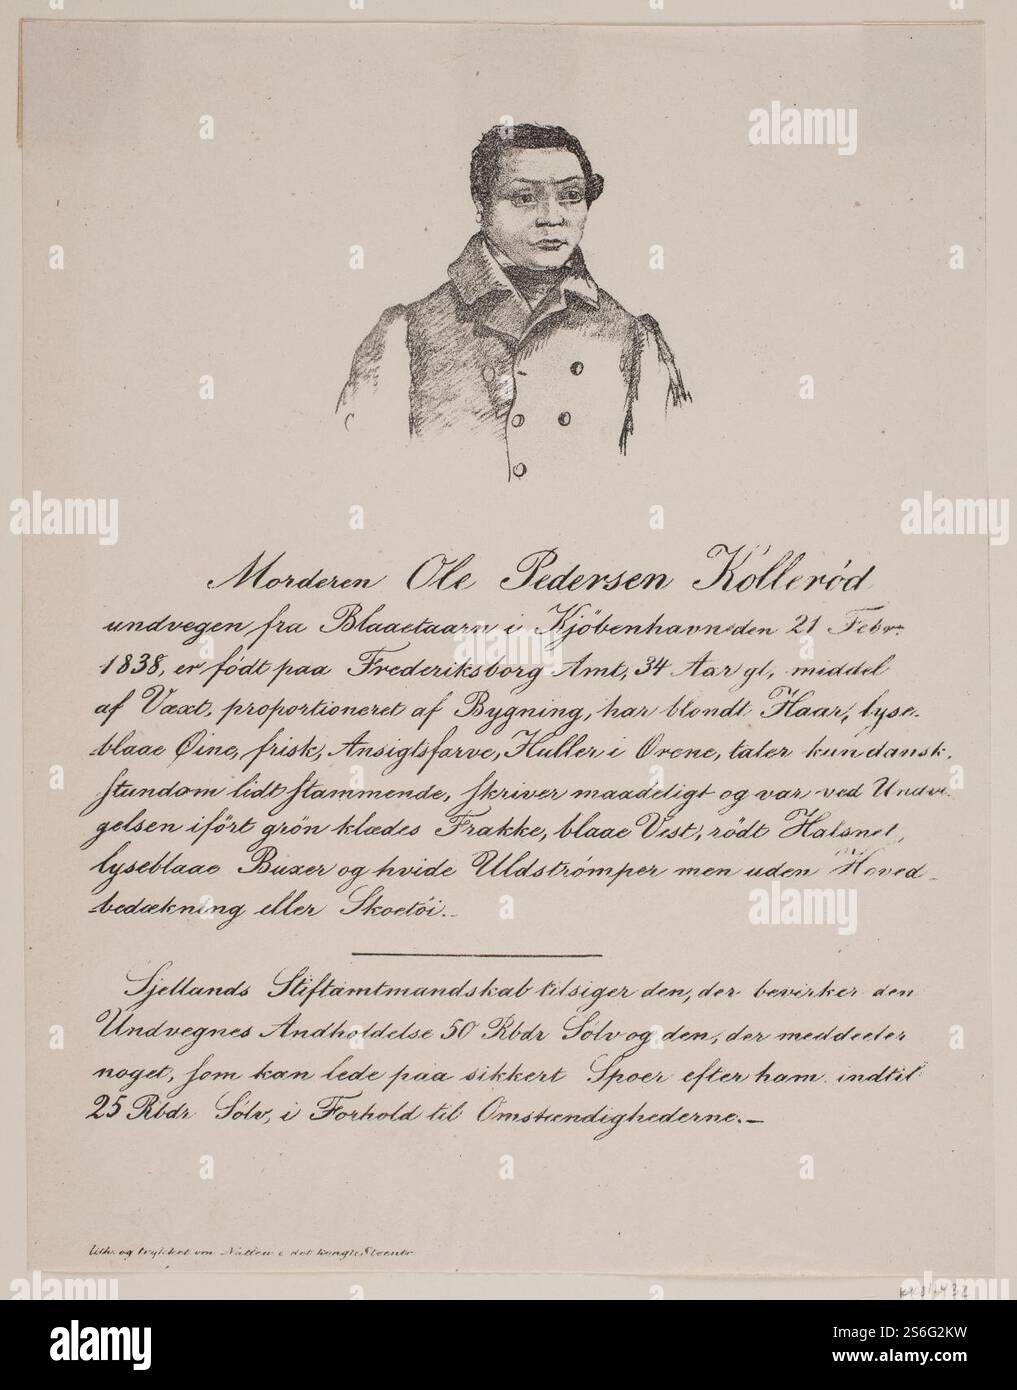 Morderen Ole Pedersen Kólleród
undvegen fra Blaaetaarn i Kjöbenhavn den 21 Febr.
1838, er födt paa Frederiksborg Amt, 34 Aar gl., middel
af Væxt, proportioneret af Bygning, har blondt Haar, lyse-
blaae Øine, frisk Ansigtsfarve, Huller i Ørene, taler kun dansk,
stundom lidt stammende, skriver maadeligt og var ved Undvi-
gelsen ifört grön klædes Frakke, blaae Vest, rödt Halsnet,
lyseblaae Buxer og hvide Uldströmper men uden Hoved-
bedækning eller Skoetöi.-
Sjellands Stiftamtmandskab tilsiger den, der bevirker den
Undvegnes Andholdelse 50 Rbdr Sölv og den, der meddeeler
noget, som kan lede paa sikkert Spoer efter ham indtil
25 Rbdr Sölv, i Forhold til Omstændighederne.-
Lith. og trykket von i det kongl. Steentr.
alamy
Image ID: 2S6G2KW
www.alamy.com